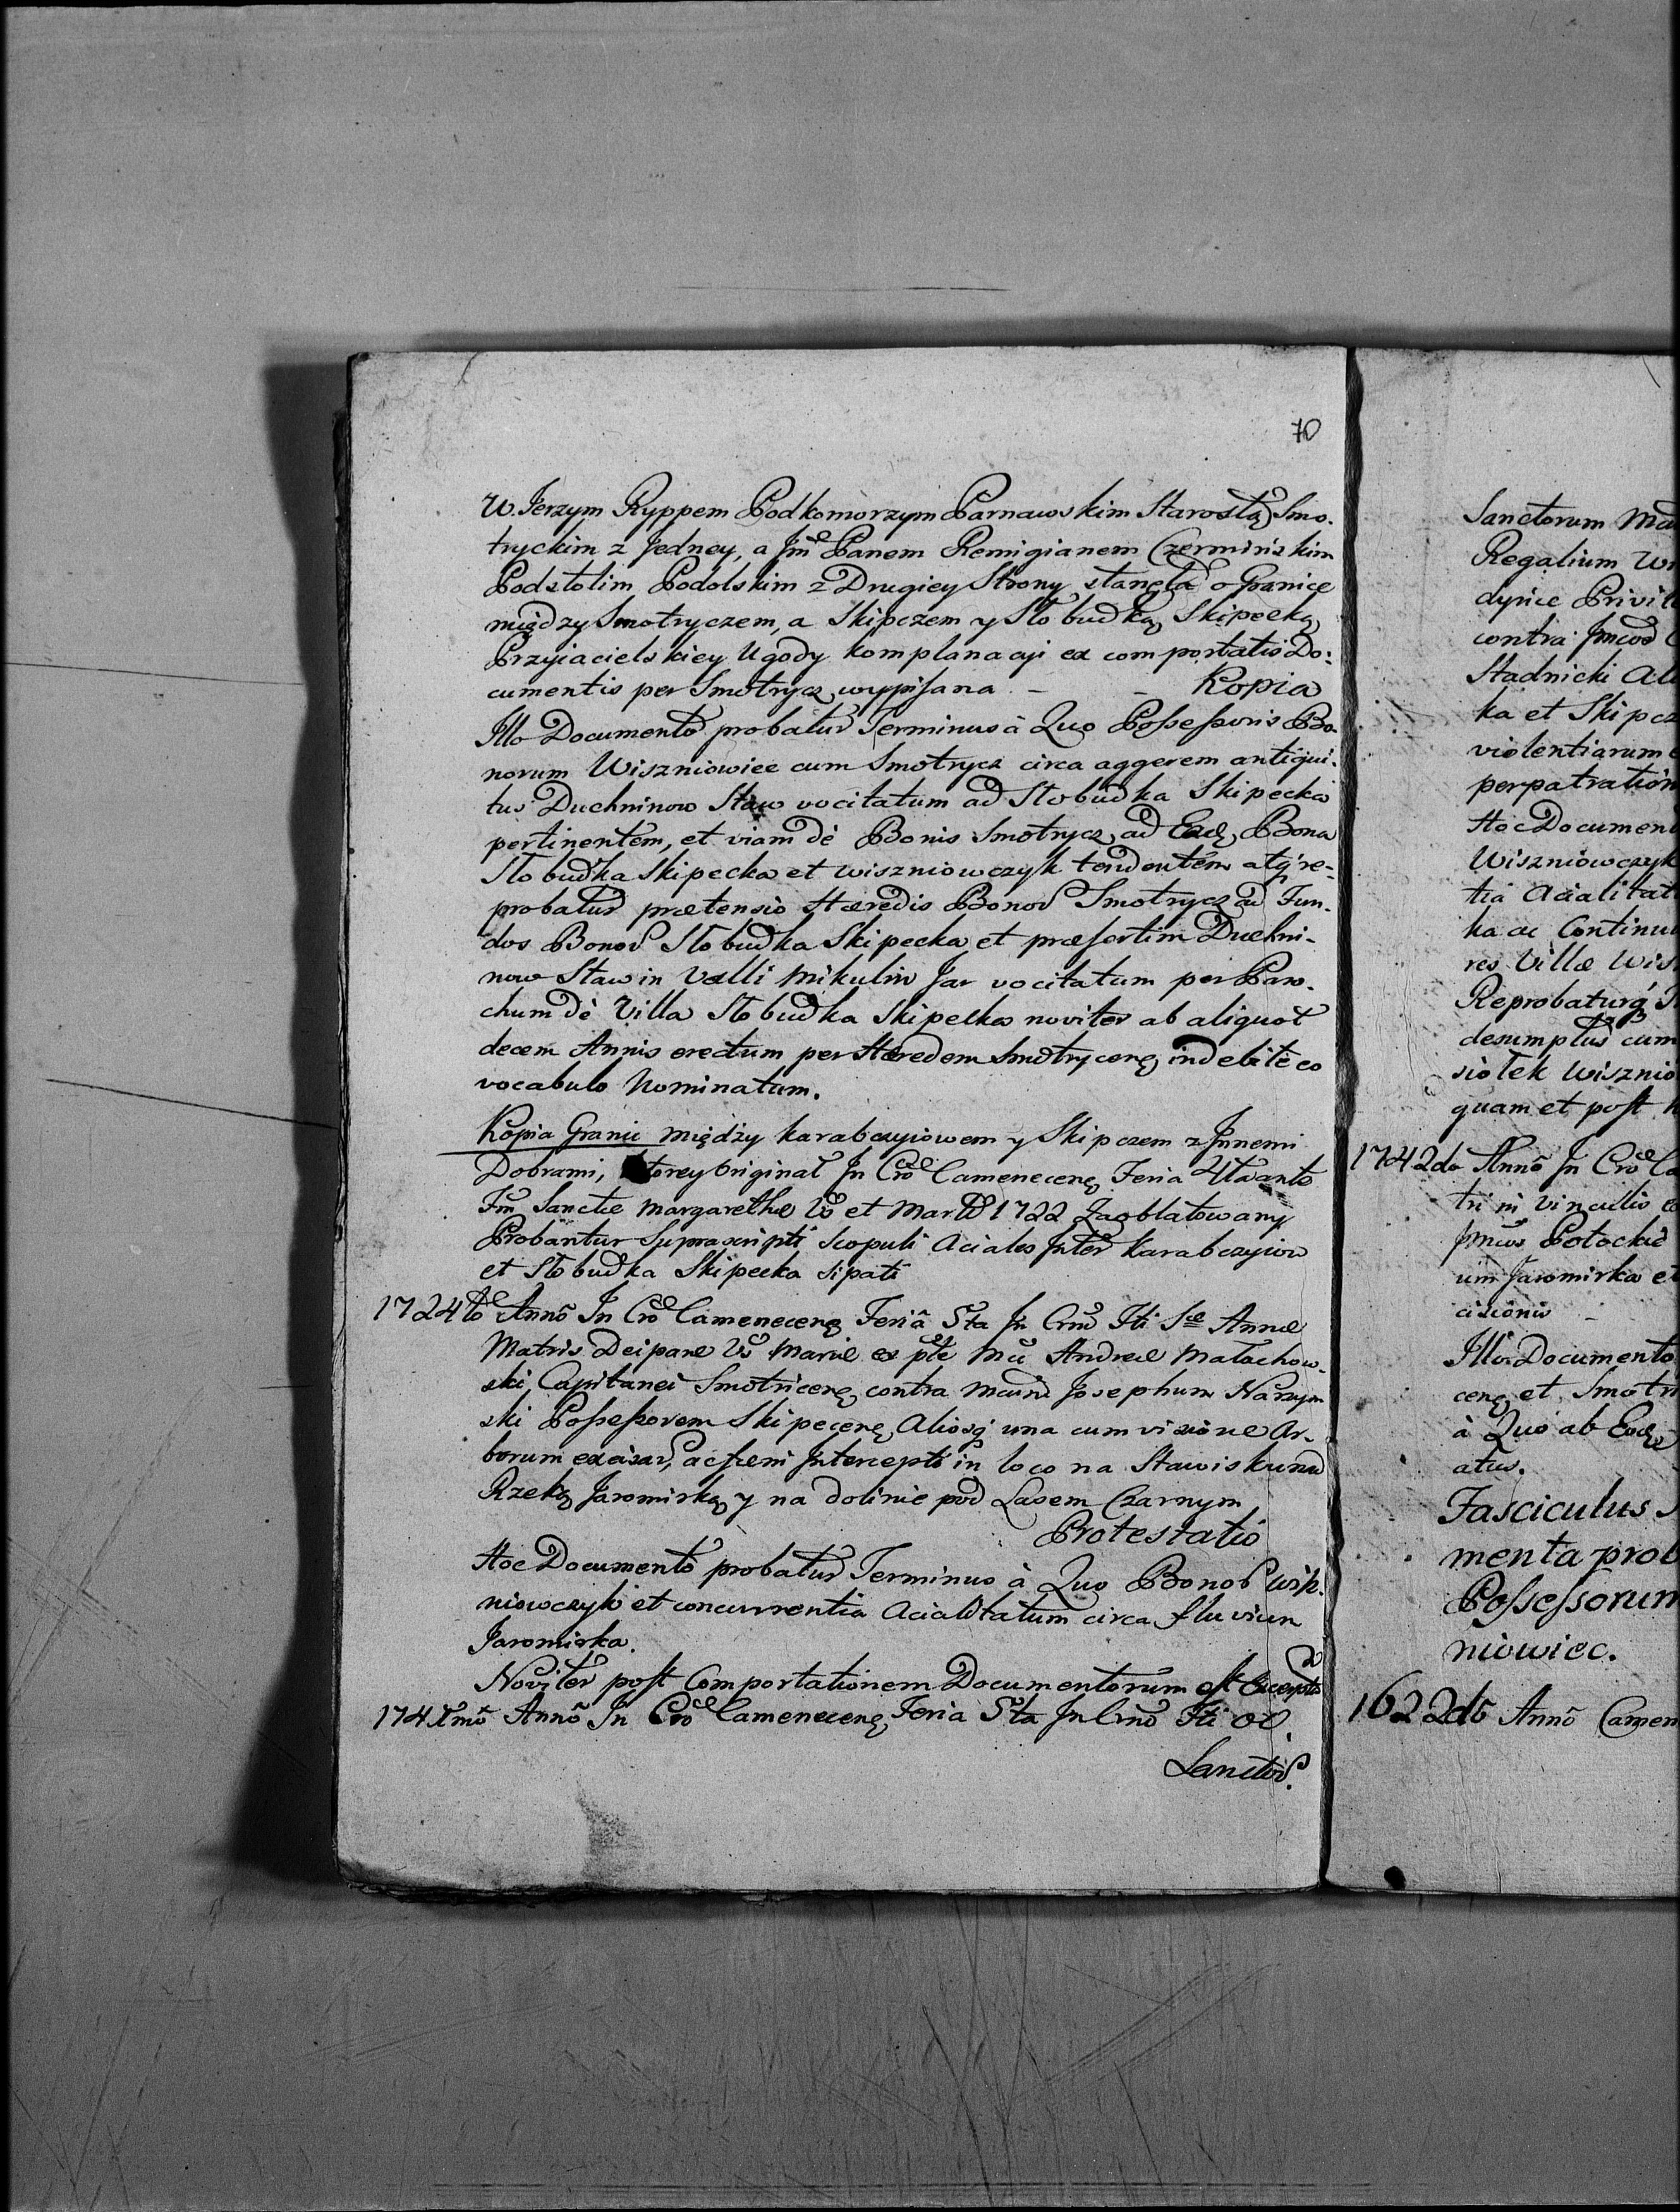 70
W. Jerzym Ryppem Podkomorzym Parnawskim Starostą Smo-
tryckim z Jedney, a Jmc Panem Remigianem Czerminskim
Podstolim Podolskim z Drugiey Strony stanęła o Granice
między Smotryczem, a Skipczem y Słobudką Skipecką
Przyiacielskiey Ugody komplanacyi ex comportatis Do:
cumentis per Smotrycz wypisana - - Kopia
Illo Documento probatur Terminus à Quo Possessoris Bo-
norum Wiszniowiec cum Smotrycz circa aggerem antiqui-
tus Duchninow Staw vocitatum ad Słobudka Skipecka
pertinentem, et viam dè Bonis Smotrycz ad Eade Bona
Słobudka Skipecka et wiszniowczyk tendentem atq re-
probatur prætensio Hæredis Bonor Smotrycz ad Fun-
dos Bonor Słobudka Skipecka et præsertim Duchni-
now Staw in Valli Mikulin Jar vocitatum per Paro-
chum dè Villa Słobudka Skipecka noviter ab aliquot
decem Annis erectum per Hæredem Smotrycens indebitè eo
vocabulo Nominatum.
Kopia Granic między karabczyiowem y Skipczem z Innemi
Dobrami, ktorey Originał In Cro Camenecens Feria 4ta ante
Fm Sanctæ Margarethæ Vs et Mart 1722 Zaoblatowany
Probantur Suprascripti Scopuli Aciales Inter Karabczyiow
et Słobudka Skipecka sipati
1724to Anno In Cro Camenecens Feriâ 5ta In Crno Fti Sce Annæ
Matris Deiparæ Vs Mariæ ex pte Mci Andreæ Małachow-
ski Capitanei Smotricens contra Mcum Josephum Narzym
ski Possessorem Skipecens Aliosq una cum visione Ar-
borum excisar, ac fœni Intercepti in loco na Stawisku nad
Rzeką Jaromirką y na dolinie pod Lasem Czarnym
Protestatio
Hoc Documento probatur Terminus à Quo Bonor Wisz-
niowczyk et concurrentia Acialitatum circa fluvium
Jaromirka.
Noviter post Comportationem Documentorum est Excepto
1741mo Anno In Cro Camenecens Feria 5ta In Crno Fti OO.
Sanctor.
Sanctorum
Regalium
dynice
contra Jmcos
Stadnicki
ka et Skipcz
violentiarum
perpatration
Hoc Document
Wiszniowczyk
tia Acialitat
ka ac Continu
res Villæ Wis
Reprobaturq
desumptus cum
siołek Wisznio
quam et post
1742do Anno In Cro Ca
tri in vinculis
Jmcos Potockie
um Jaromirka et
cisionis -
Illo Documento
cens et Smotri
à Quo ab Eode
atus.
Fasciculus
menta prob
Possessorum
niowiec.
1622do Anno Camen